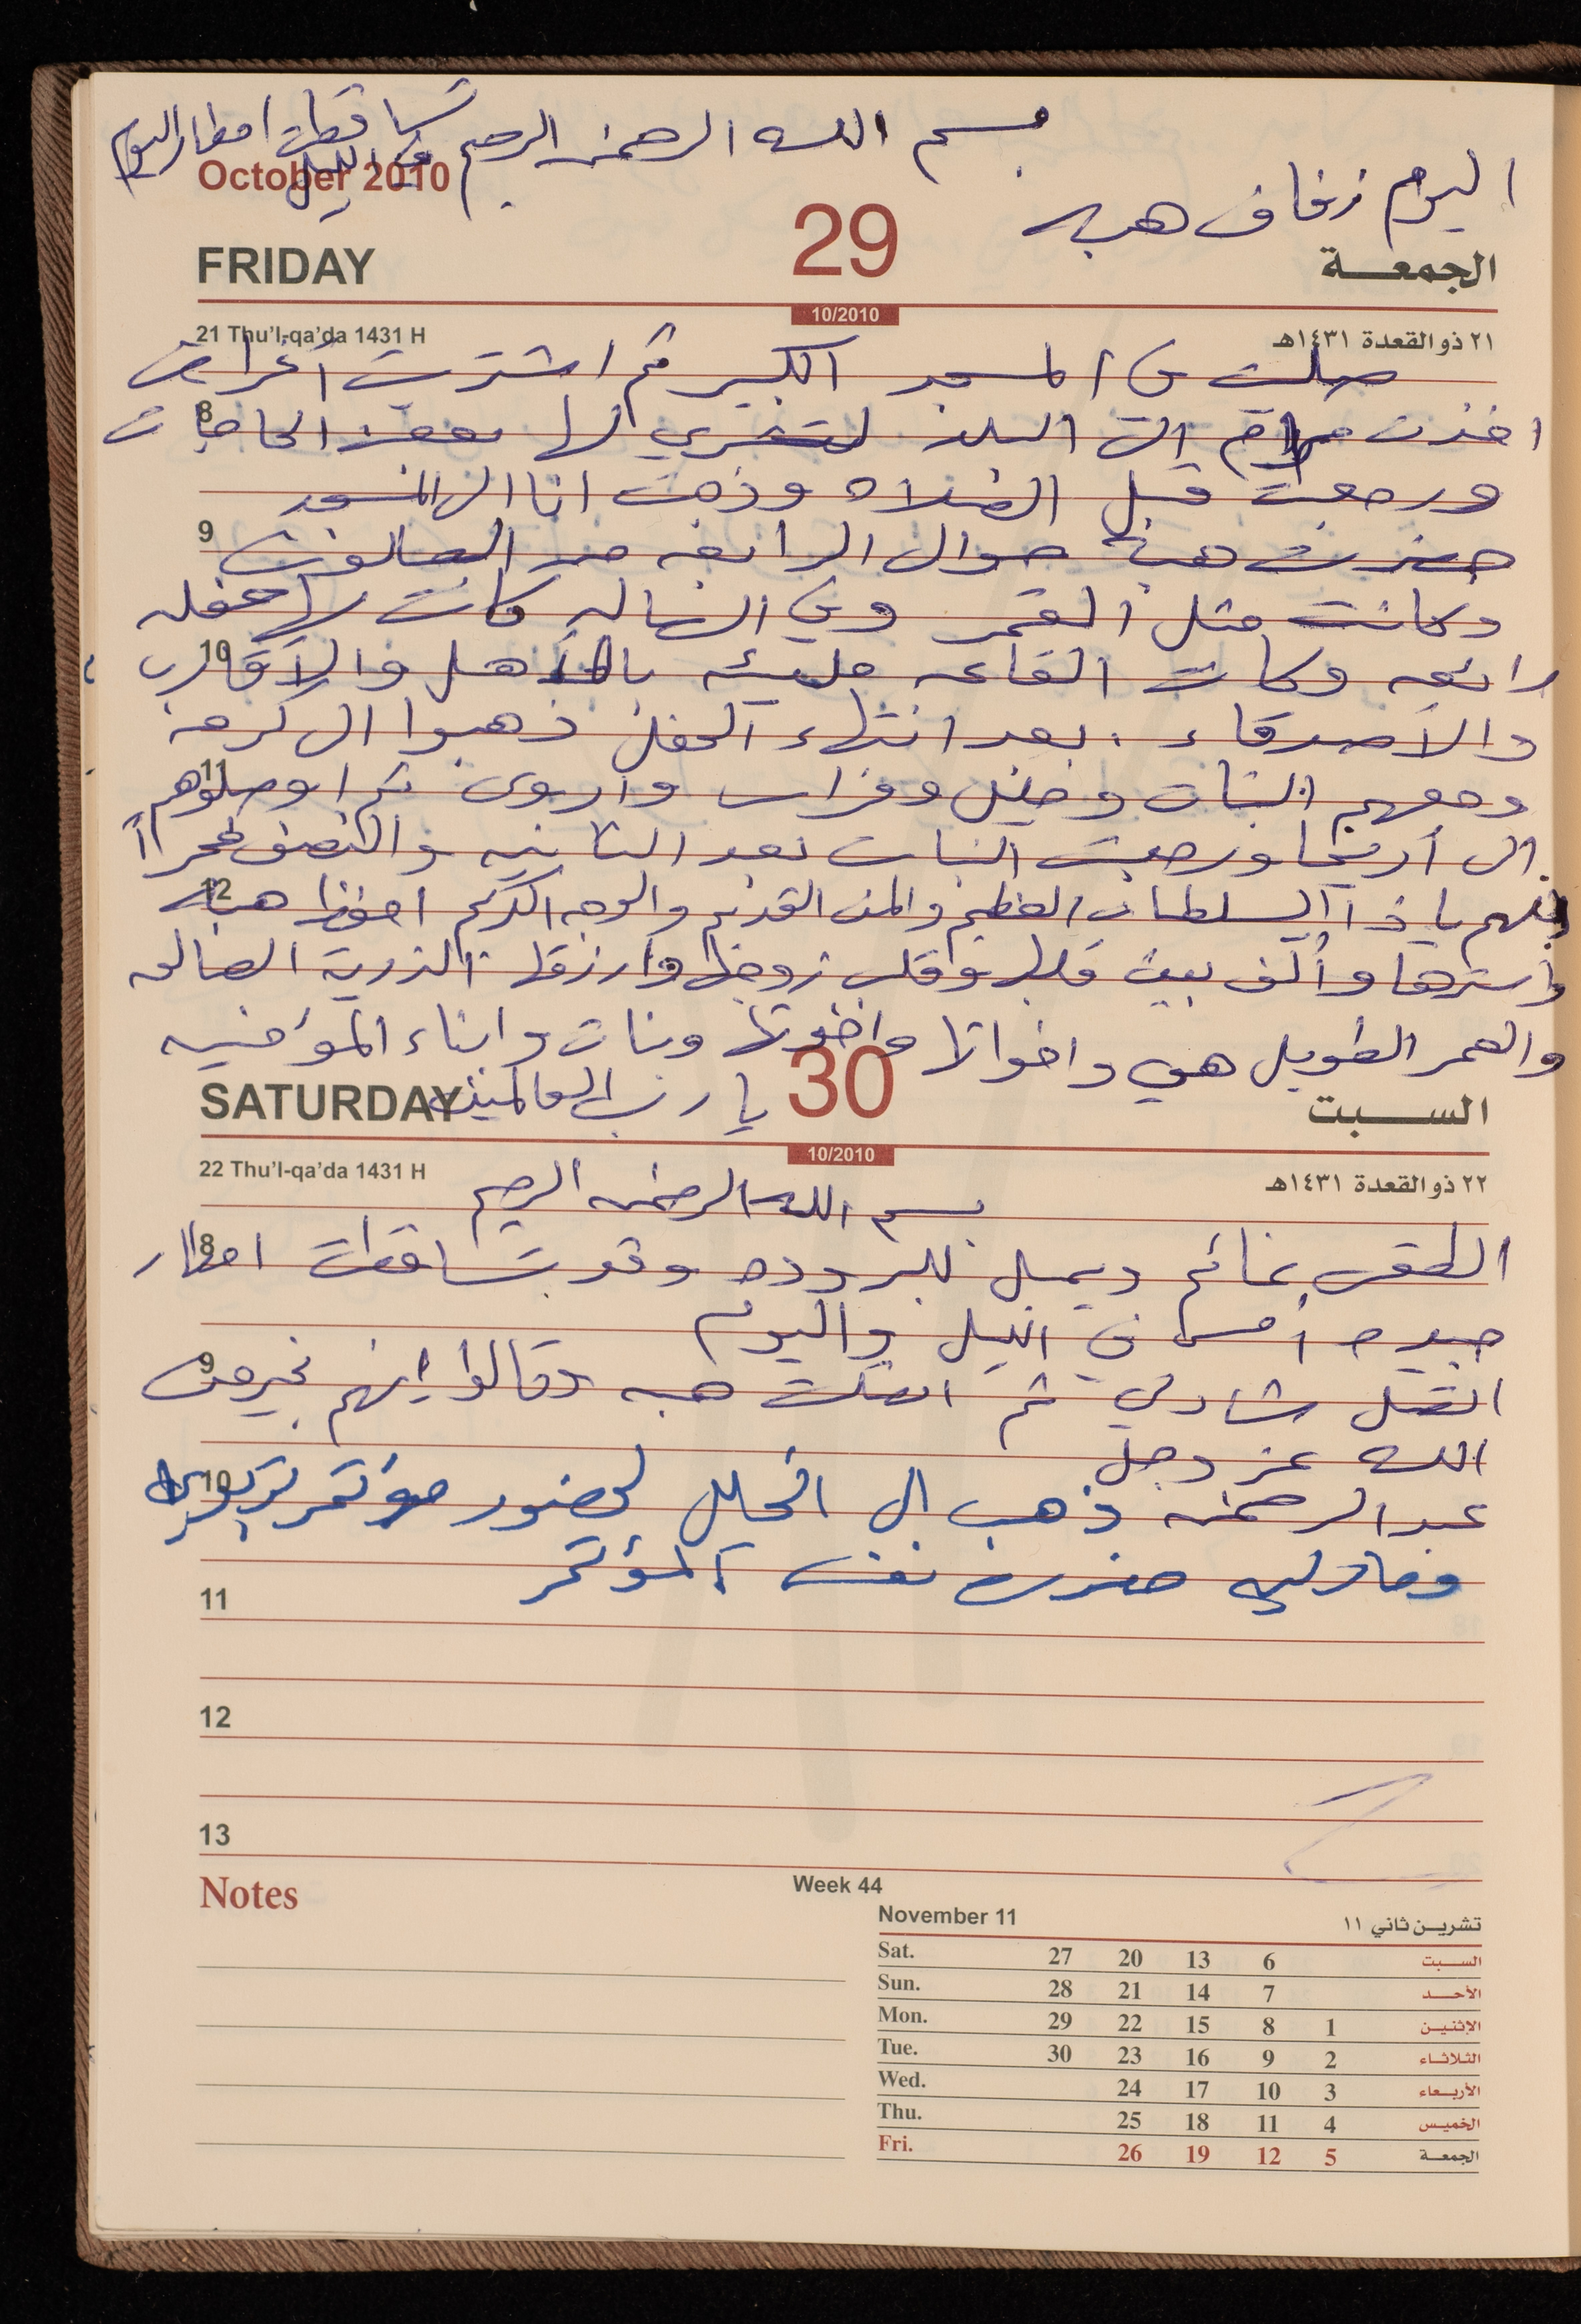 بسم الله الرحمن الرحيم
تساقطت امطار اليوم
في الليل
اليوم زفاف هبه
October 2010
29
FRIDAY
الجمعة
10/2010
21 Thu'l-qa'da 1431 H
٢١ ذو القعدة ١٤٣١هـ
صليت في المسجد الكبير ثم اشتريت أغراض
8
اخذت مرام الى البلد لتشري لها بعض الحاجات
ورجعت قبل الصلاه وذهبت انا الى المسجد
9
حضرت هبة حوال الرابعه من الصالون
وكانت مثل القمر وفي النهايه كانت الحفله
10
رائعه وكانت القاعه مليئه بالأهل والأقارب
والأصدقاء . بعد انتهاء الحفل ذهبوا الى
11
ومعهم البنات وفراس واروى ثم اوصلوهم
الى أريحا ورجعت البنات بعد الثانيه والنصف فجراً
12
اللهم يا ذا السلطان العظيم والمن القديم والوجه الكريم احفظ هبه
وأسترها وألف بين قلبها وقلب زوجها وارزقها الذرية الصالحه
والعمر الطويل هي واخواتها واخوتها وبنات وابناء المؤمنين
يا رب العالمين
30
SATURDAY
السبت
10/2010
22 Thu'l-qa'da 1431 H
٢٢ ذو القعدة ١٤٣١هـ
بسم الله الرحمن الرحيم
8
الطقس غائم ويميل للبروده وقد تساقطت امطار
جيده أمس في الليل واليوم
9
اتصل شادي ثم اتصلت هبه وقالوا إنهم بخير من
الله عز وجل
10
عبد الرحمن ذهب الى الخليل لحضور مؤتمر تربوي
حضرت نفس المؤتمر
11
12
13
Notes
Week 44
November 11
تشرين ثاني ١١
Sat. 27 20 13 6 السبت
Sun. 28 21 14 7 الأحد
Mon. 29 22 15 8 1 الإثنين
Tue. 30 23 16 9 2 الثلاثاء
Wed. 24 17 10 3 الأربعاء
Thu. 25 18 11 4 الخميس
Fri. 26 19 12 5 الجمعة